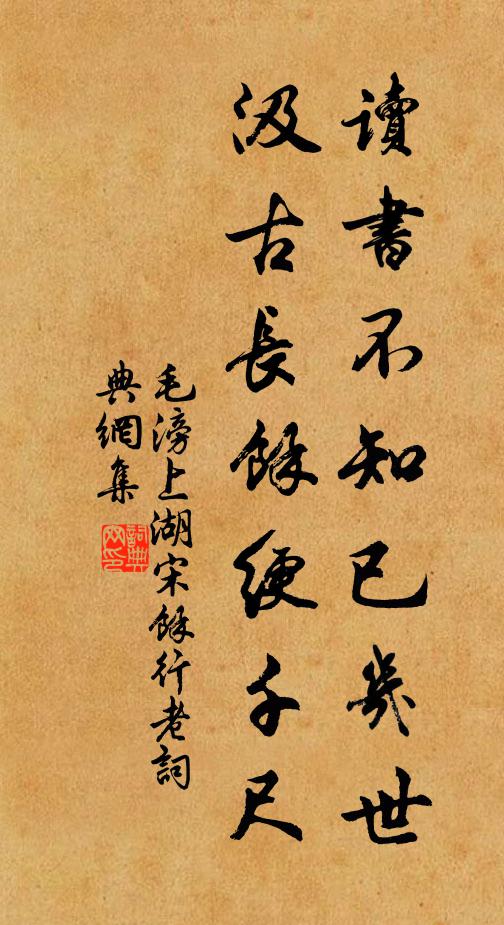 讀書不知已幾世
汲古長餘綆千尺
毛滂上湖宋餘行老詞
典網集
詞典網印